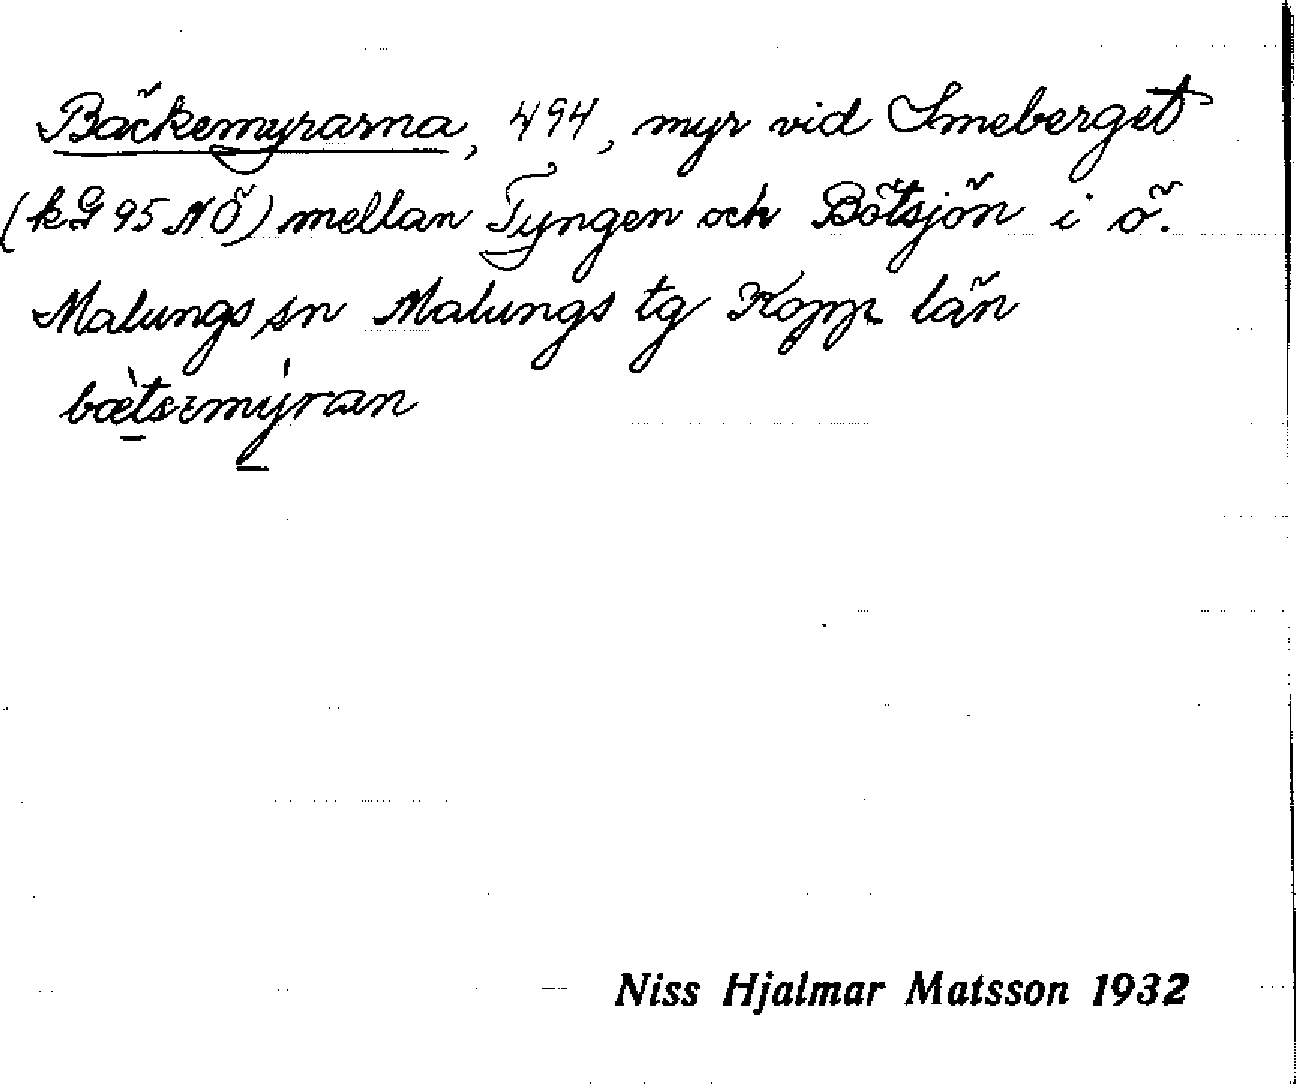 Bäckemyrarna, 494, myr vid Smeberget
(kG 95 NÖ) mellan Tyngen och Bötsjön i ö.
Malungs sn Malungs tg Kopp. län
bætsɛmýran
Niss Hjalmar Matsson 1932